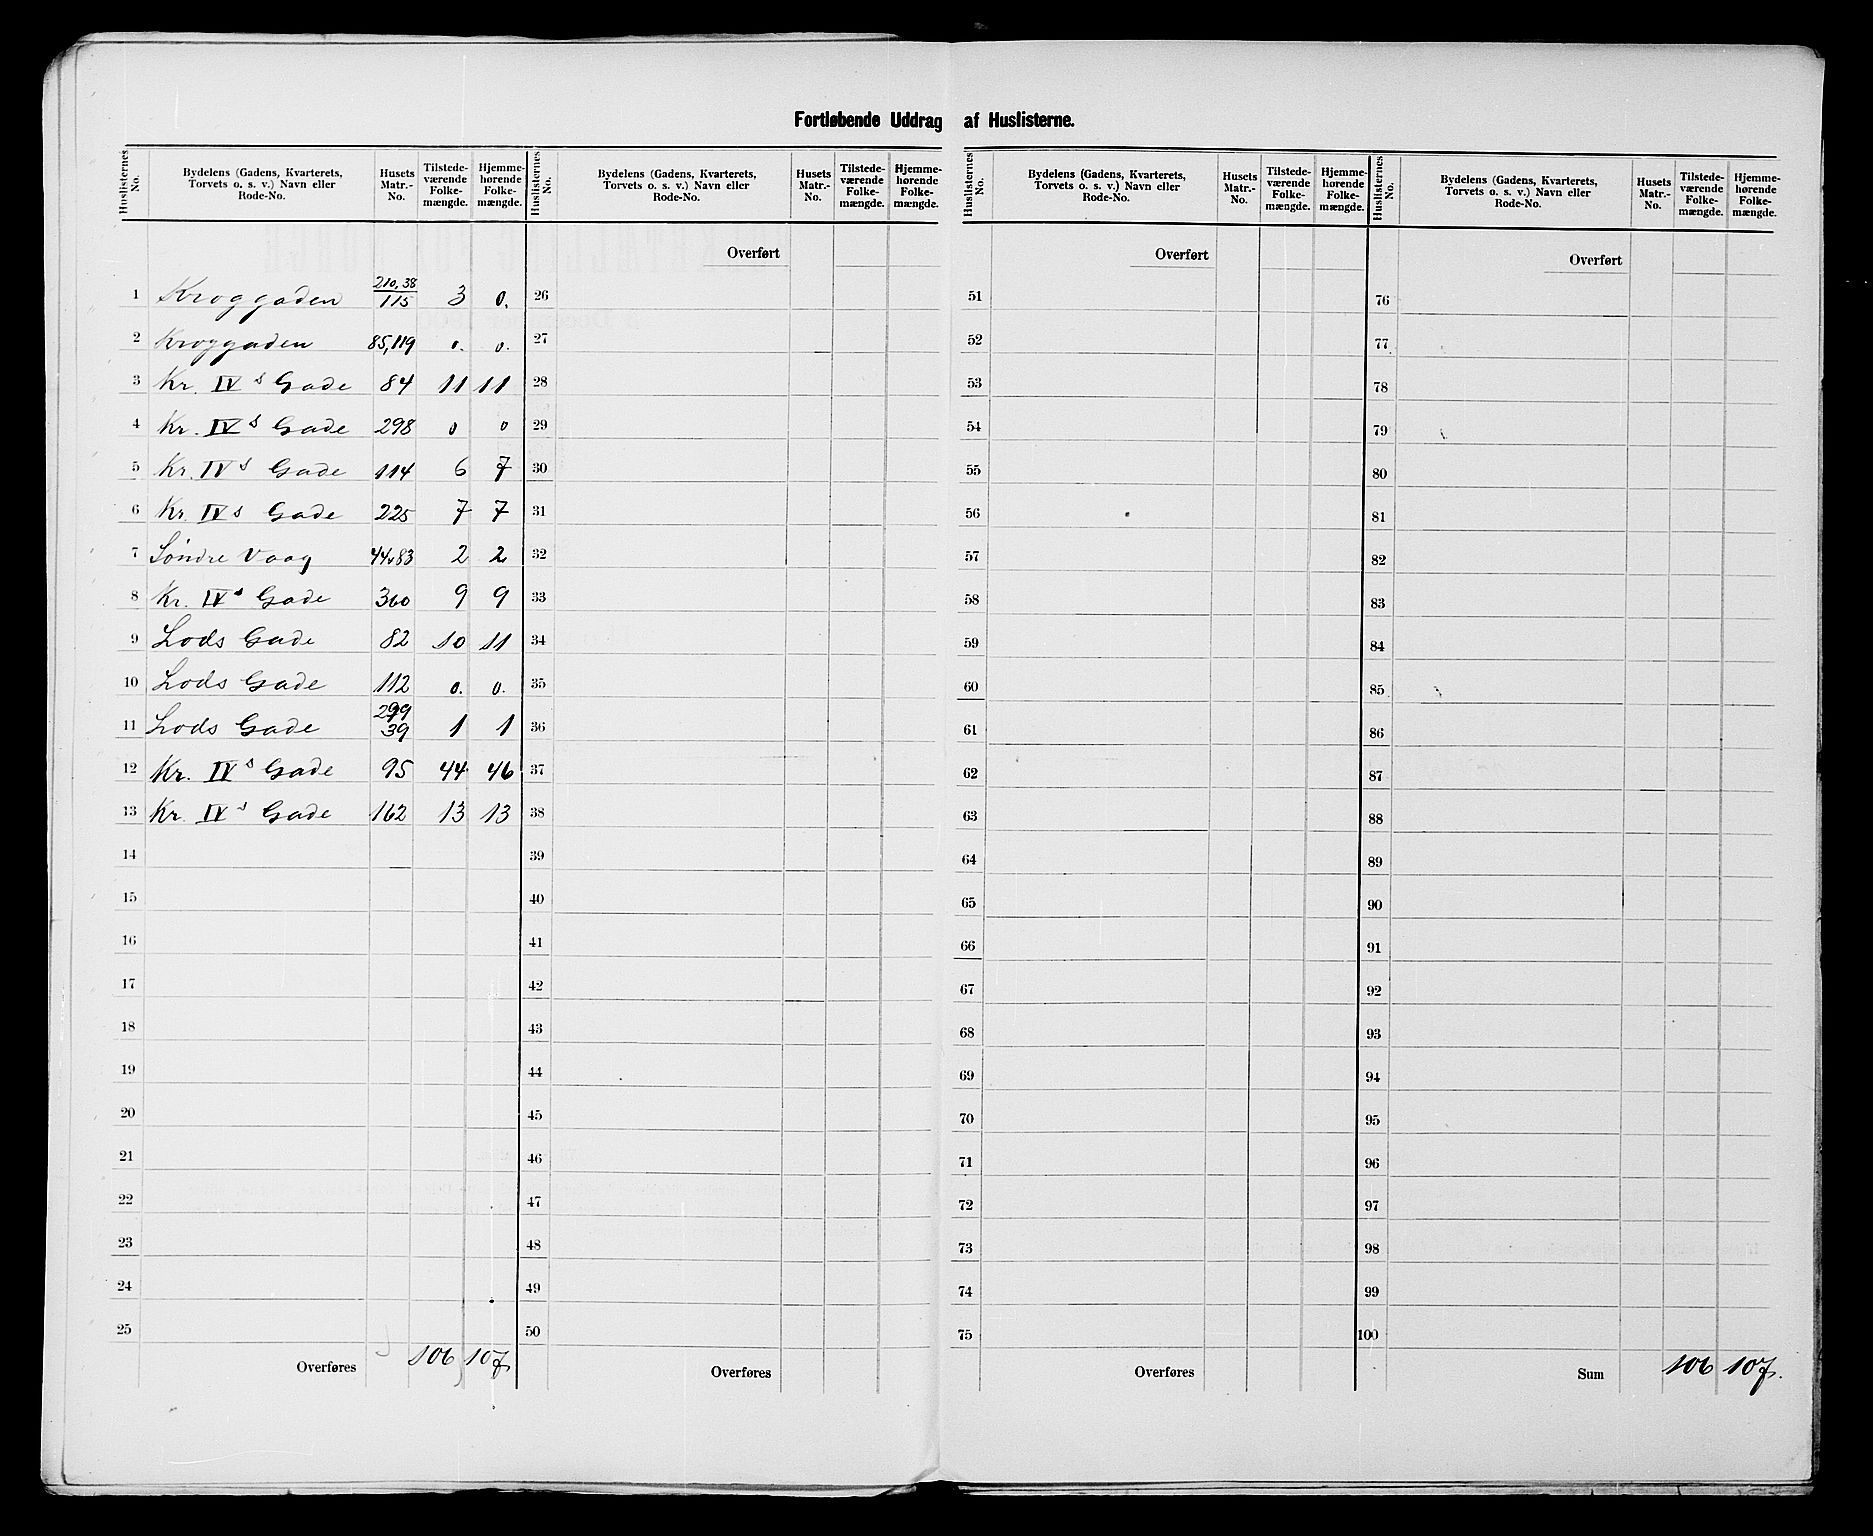 Fortløbende Uddrag af Huslisterne.
Huslisternes No. | Bydelens (Gadens, Kvarterets, Torvets o. s. v.) Navn eller Rode-No. | Husets Matr.-No. | Tilstede-værende Folke-mængde. | Hjemme-hørende Folke-mængde.
Huslisternes No. | Bydelens (Gadens, Kvarterets, Torvets o. s. v.) Navn eller Rode-No. | Husets Matr.-No. | Tilstede-værende Folke-mængde. | Hjemme-hørende Folke-mængde.
Huslisternes No. | Bydelens (Gadens, Kvarterets, Torvets o. s. v.) Navn eller Rode-No. | Husets Matr.-No. | Tilstede-værende Folke-mængde. | Hjemme-hørende Folke-mængde.
Huslisternes No. | Bydelens (Gadens, Kvarterets, Torvets o. s. v.) Navn eller Rode-No. | Husets Matr.-No. | Tilstede-værende Folke-mængde. | Hjemme-hørende Folke-mængde.
1 Kroggaden 210,38/115 3 0.
2 Kroggaden 85,119 0. 0.
3 Kr. IVs Gade 84 11 11
4 Kr. IVs Gade 298 0 0
5 Kr. IVs Gade 114 6 7
6 Kr. IVs Gade 225 7 7
7 Søndre Vaag 44,83 2 2
8 Kr. IVs Gade 360 9 9
9 Lods Gade 82 10 11
10 Lods Gade 112 0. 0.
11 Lods Gade 299 39 1 1
12 Kr. IVs Gade 95 44 46
13 Kr. IVs Gade 162 13 13
14
15
16
17
18
19
20
21
22
23
24
25
Overføres 106 107
Overført
26
27
28
29
30
31
32
33
34
35
36
37
38
39
40
41
42
43
44
45
46
47
48
49
50
Overføres
Overført
51
52
53
54
55
56
57
58
59
60
61
62
63
64
65
66
67
68
69
70
71
72
73
74
75
Overføres
Overført
76
77
78
79
80
81
82
83
84
85
86
87
88
89
90
91
92
93
94
95
96
97
98
99
100
Sum 106 107.